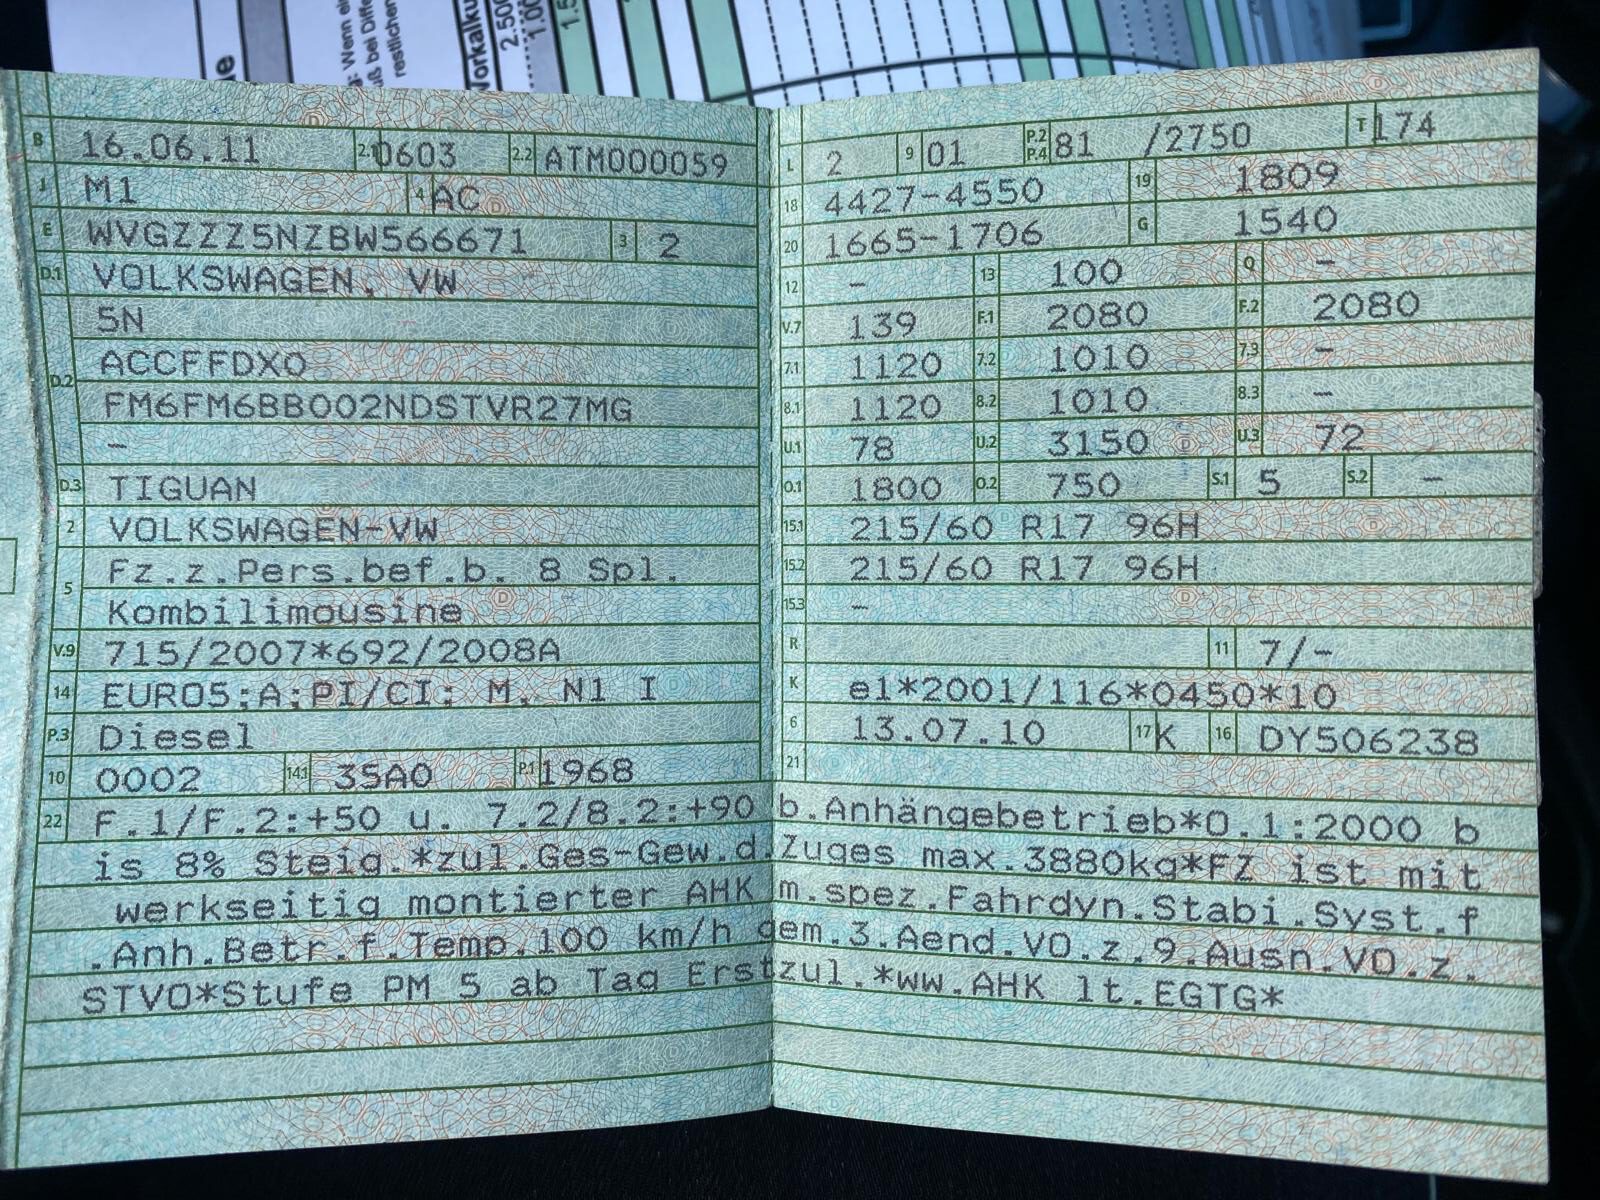 ne
: Wenn ei
uß bei Diffe
restlichen
Vorkalku
2.500
1.00
1.5
B 16.06.11 2.1 0603 2.2 ATM000059
J M1 4 AC
E WVGZZZ5NZBW566671 3 2
D.1 VOLKSWAGEN, VW
5N
D.2 ACCFFDX0
FM6FM6BB002NDSTVR27MG
–
D.3 TIGUAN
2 VOLKSWAGEN-VW
5 Fz.z.Pers.bef.b. 8 Spl.
Kombilimousine
V.9 715/2007*692/2008A
14 EURO5;A;PI/CI; M, N1 I
P.3 Diesel
10 0002 14.1 35A0 P.1 1968
L 2 9 01 P.2 P.4 81 /2750 T 174
18 4427-4550 19 1809
20 1665-1706 G 1540
12 – 13 100 Q –
V.7 139 F.1 2080 F.2 2080
7.1 1120 7.2 1010 7.3 –
8.1 1120 8.2 1010 8.3 –
U.1 78 U.2 3150 U.3 72
O.1 1800 O.2 750 S.1 5 S.2 –
15.1 215/60 R17 96H
15.2 215/60 R17 96H
15.3 –
R 11 7/–
K e1*2001/116*0450*10
6 13.07.10 17 K 16 DY506238
21
22 F.1/F.2:+50 u. 7.2/8.2:+90 b.Anhängebetrieb*O.1:2000 b
is 8% Steig.*zul.Ges-Gew.d.Zuges max.3880kg*FZ ist mit
werkseitig montierter AHK m.spez.Fahrdyn.Stabi.Syst.f
.Anh.Betr.f.Temp.100 km/h gem.3.Aend.VO.z.9.Ausn.VO.z.
STVO*Stufe PM 5 ab Tag Erstzul.*ww.AHK lt.EGTG*